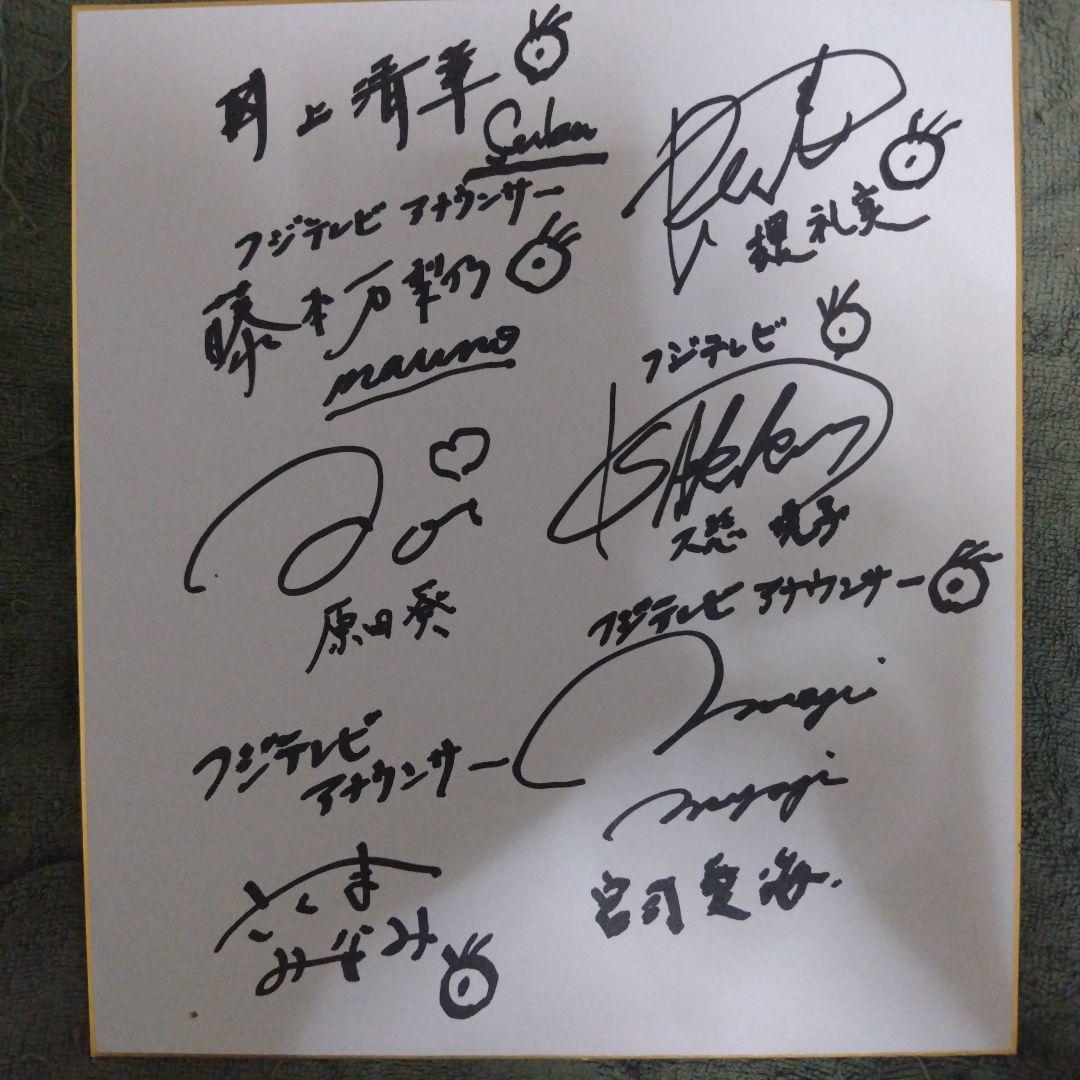 井上清華
Seika
フジテレビ アナウンサー
藤本万梨乃
marino
原田葵
フジテレビ
アナウンサー
さくま
みなみ
堤礼実
フジテレビ
久慈暁子
フジテレビ アナウンサー
miyagi
宮司愛海